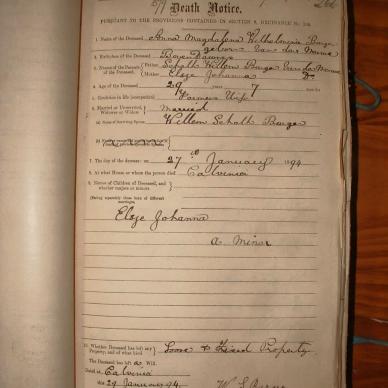 Death Notice.
PURSUANT TO THE PROVISIONS CONTAINED IN SECTION 9, ORDINANCE No. 104.
1. Name of the Deceased Anna Magdalena Wilhelmina Burger
geboren van der Merwe
2. Birthplace of the Deceased
3. Names of the Parents of the Deceased. Father Schalk Willem Burger van der Merwe
Mother Elsje Johanna Do
4. Age of the Deceased 29 years 7
5. Condition in life (occupation) Farmers Wife
6. Married or Unmarried, Widower or Widow Married
(a) Name of Surviving Spouse Willem Schalk Burger
7. The day of the decease on 27 January 94
8. At what House or where the person died Calvinia
9. Names of Children of Deceased, and whether majors or minors
(Stating separately those born of different marriages)
Elsje Johanna
a Minor
10. Whether Deceased has left any Property, and of what kind Loose & Fixed Property
The Deceased has left a Will.
Dated at Calvinia
this 29 January 94.